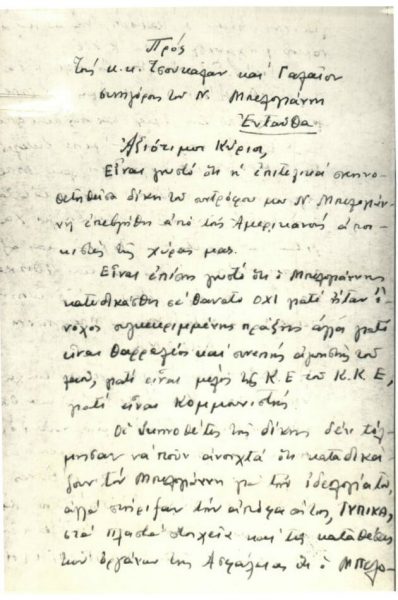 Πρός
τούς κ.κ. Τσουκαλάν καί Γαλαῖον
συνηγόρους τοῦ Ν. Μπελογιάννη
Ἐνταῦθα
Ἀξιότιμοι Κύριοι,
Εἶναι γνωστό ὅτι ἡ ἐπιτελικά σκηνο-
θετηθεῖσα δίκη τοῦ συντρόφου μου Ν. Μπελογιάν-
νη ἐπεβλήθη ἀπό τούς Ἀμερικανούς ἀποι-
κιστές τῆς χώρας μας.
Εἶναι ἐπίσης γνωστό ὅτι ὁ Μπελογιάννης
κατεδικάσθη σέ θάνατο ὄχι γιατί ἦταν ἔ-
νοχος συγκεκριμμένης πράξης ἀλλά γιατί
εἶναι θαρραλέος καί συνεπής ἀγωνιστής τοῦ
λαοῦ, γιατί εἶναι μέλος τῆς Κ.Ε τοῦ Κ.Κ.Ε,
γιατί εἶναι Κομμουνιστής.
Οἱ σκηνοθέτες τῆς δίκης δέν τόλ-
μησαν νά ποῦν ἀνοιχτά ὅτι καταδικά-
ζουν τόν Μπελογιάννη γιά τήν ἰδεολογία του,
ἀλλά στήριξαν τήν ἀπόφασή τους, ΤΥΠΙΚΑ,
στά πλαστά στοιχεῖα καί τίς καταθέσεις
τῶν ὀργάνων τῆς Ἀσφάλειας ὅτι ὁ Μπελο-